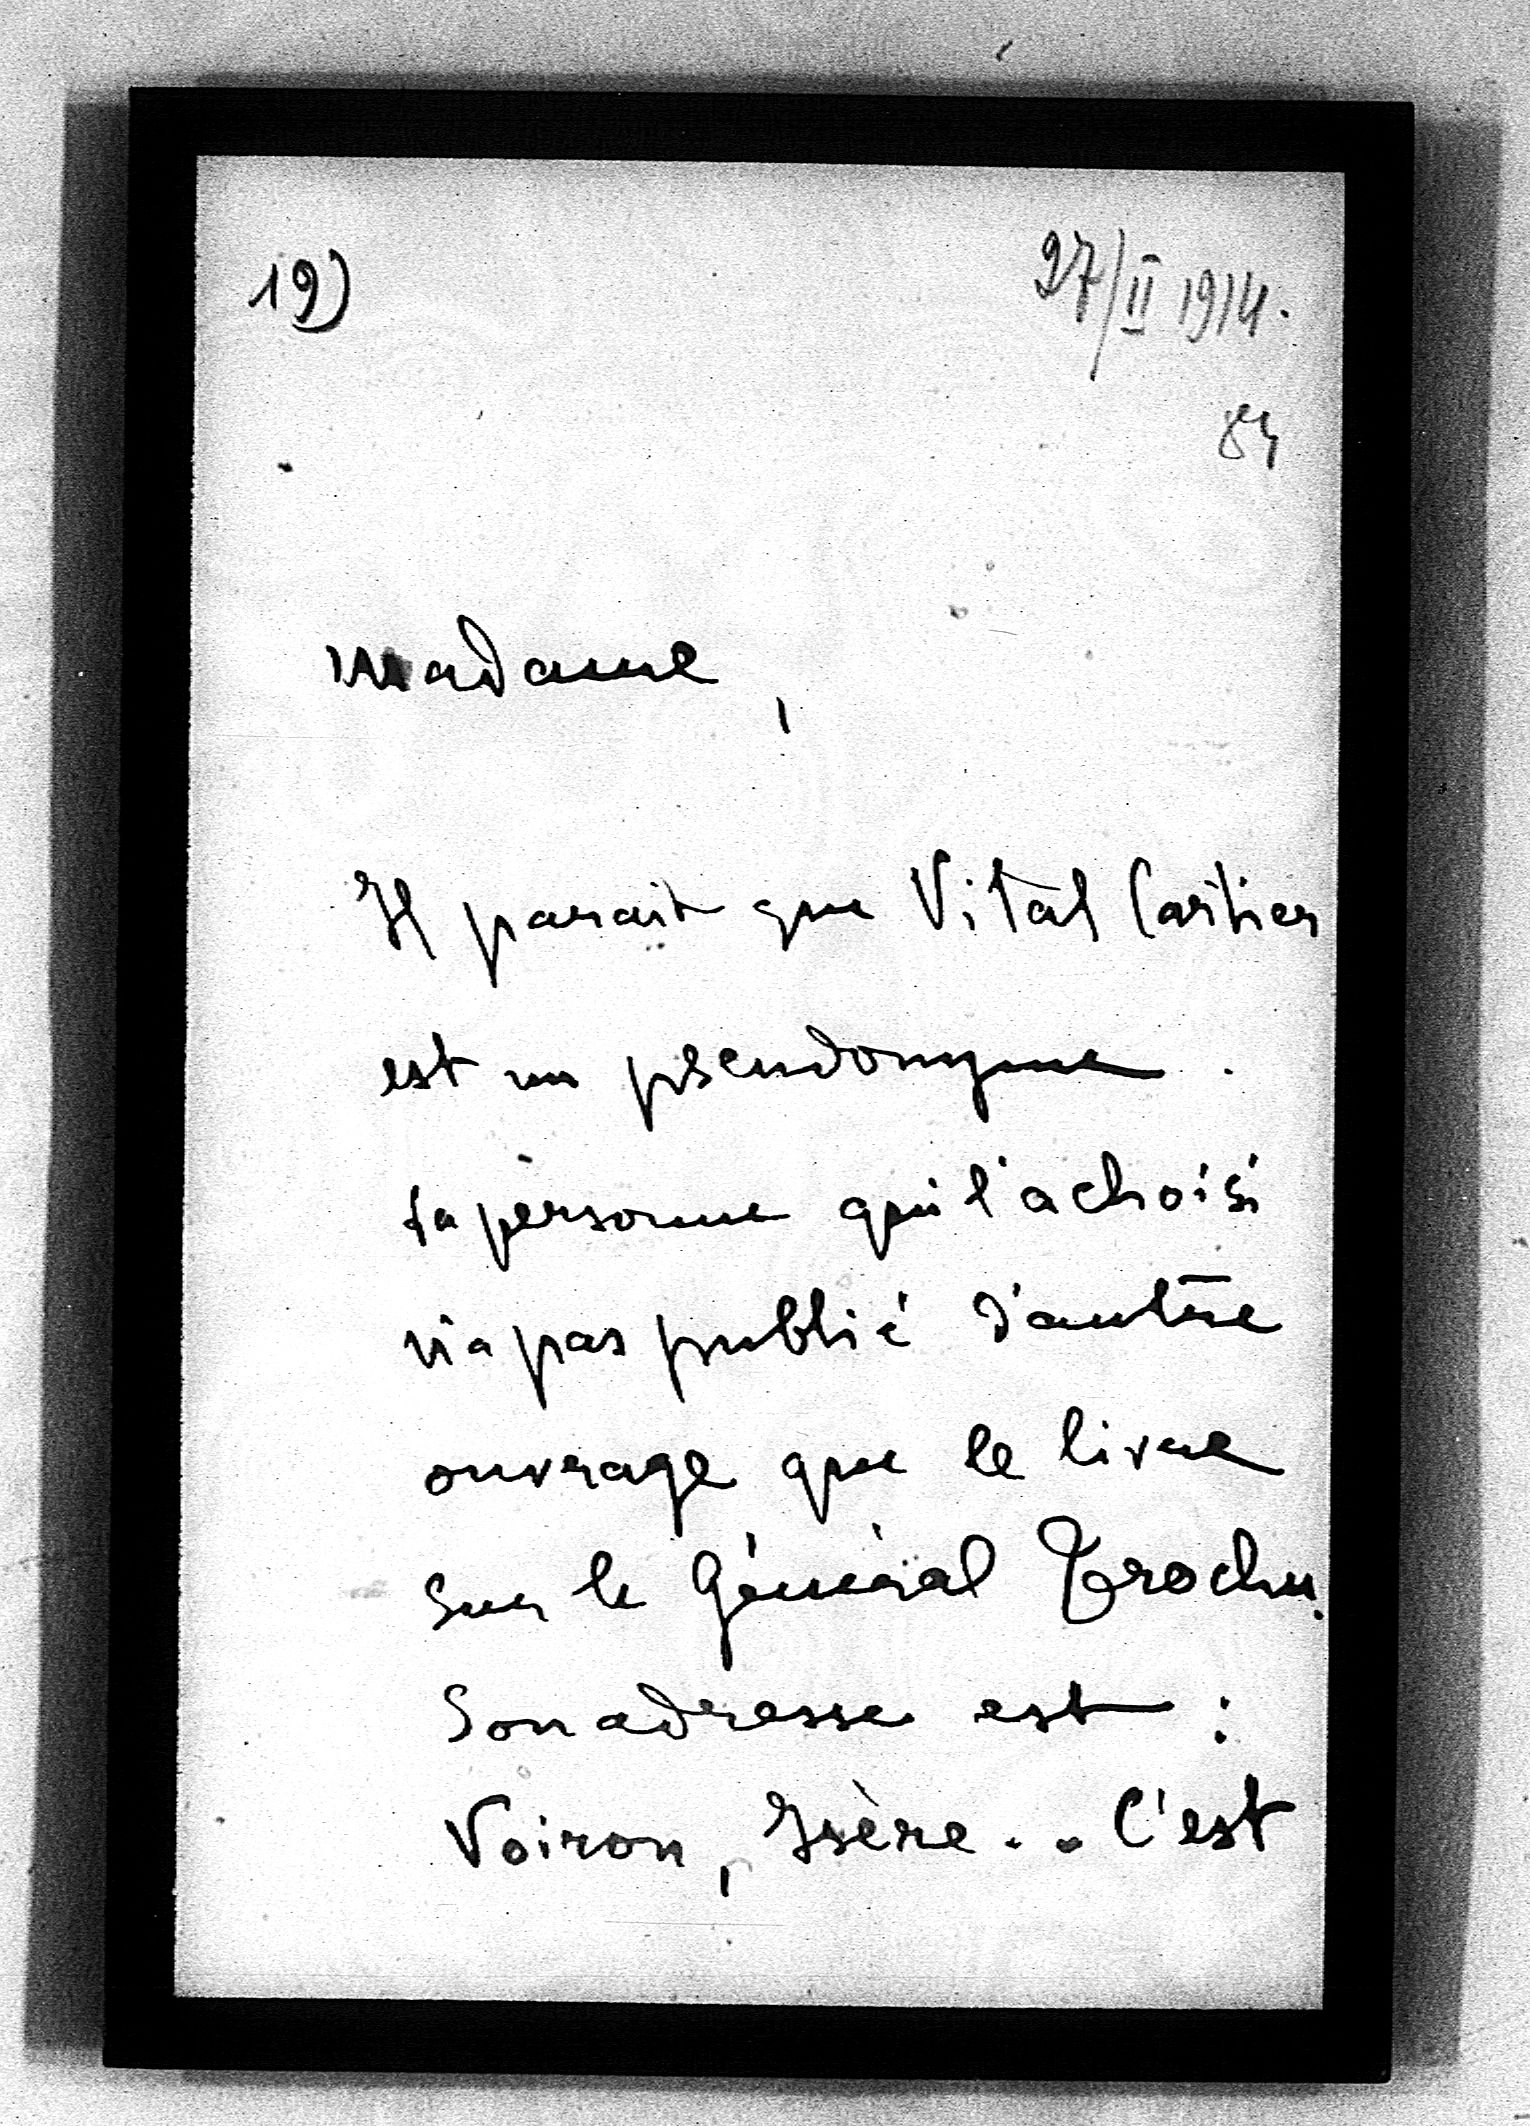 19)
27/II 1914.
84
Madame,
Il parait que Vital Cartier
est un pseudonyme.
La personne qui l'a choisi
n'a pas publié d'autre
ouvrage que le livre
sur le Général Trochu.
Son adresse est :
Voiron, Isère.. C'est